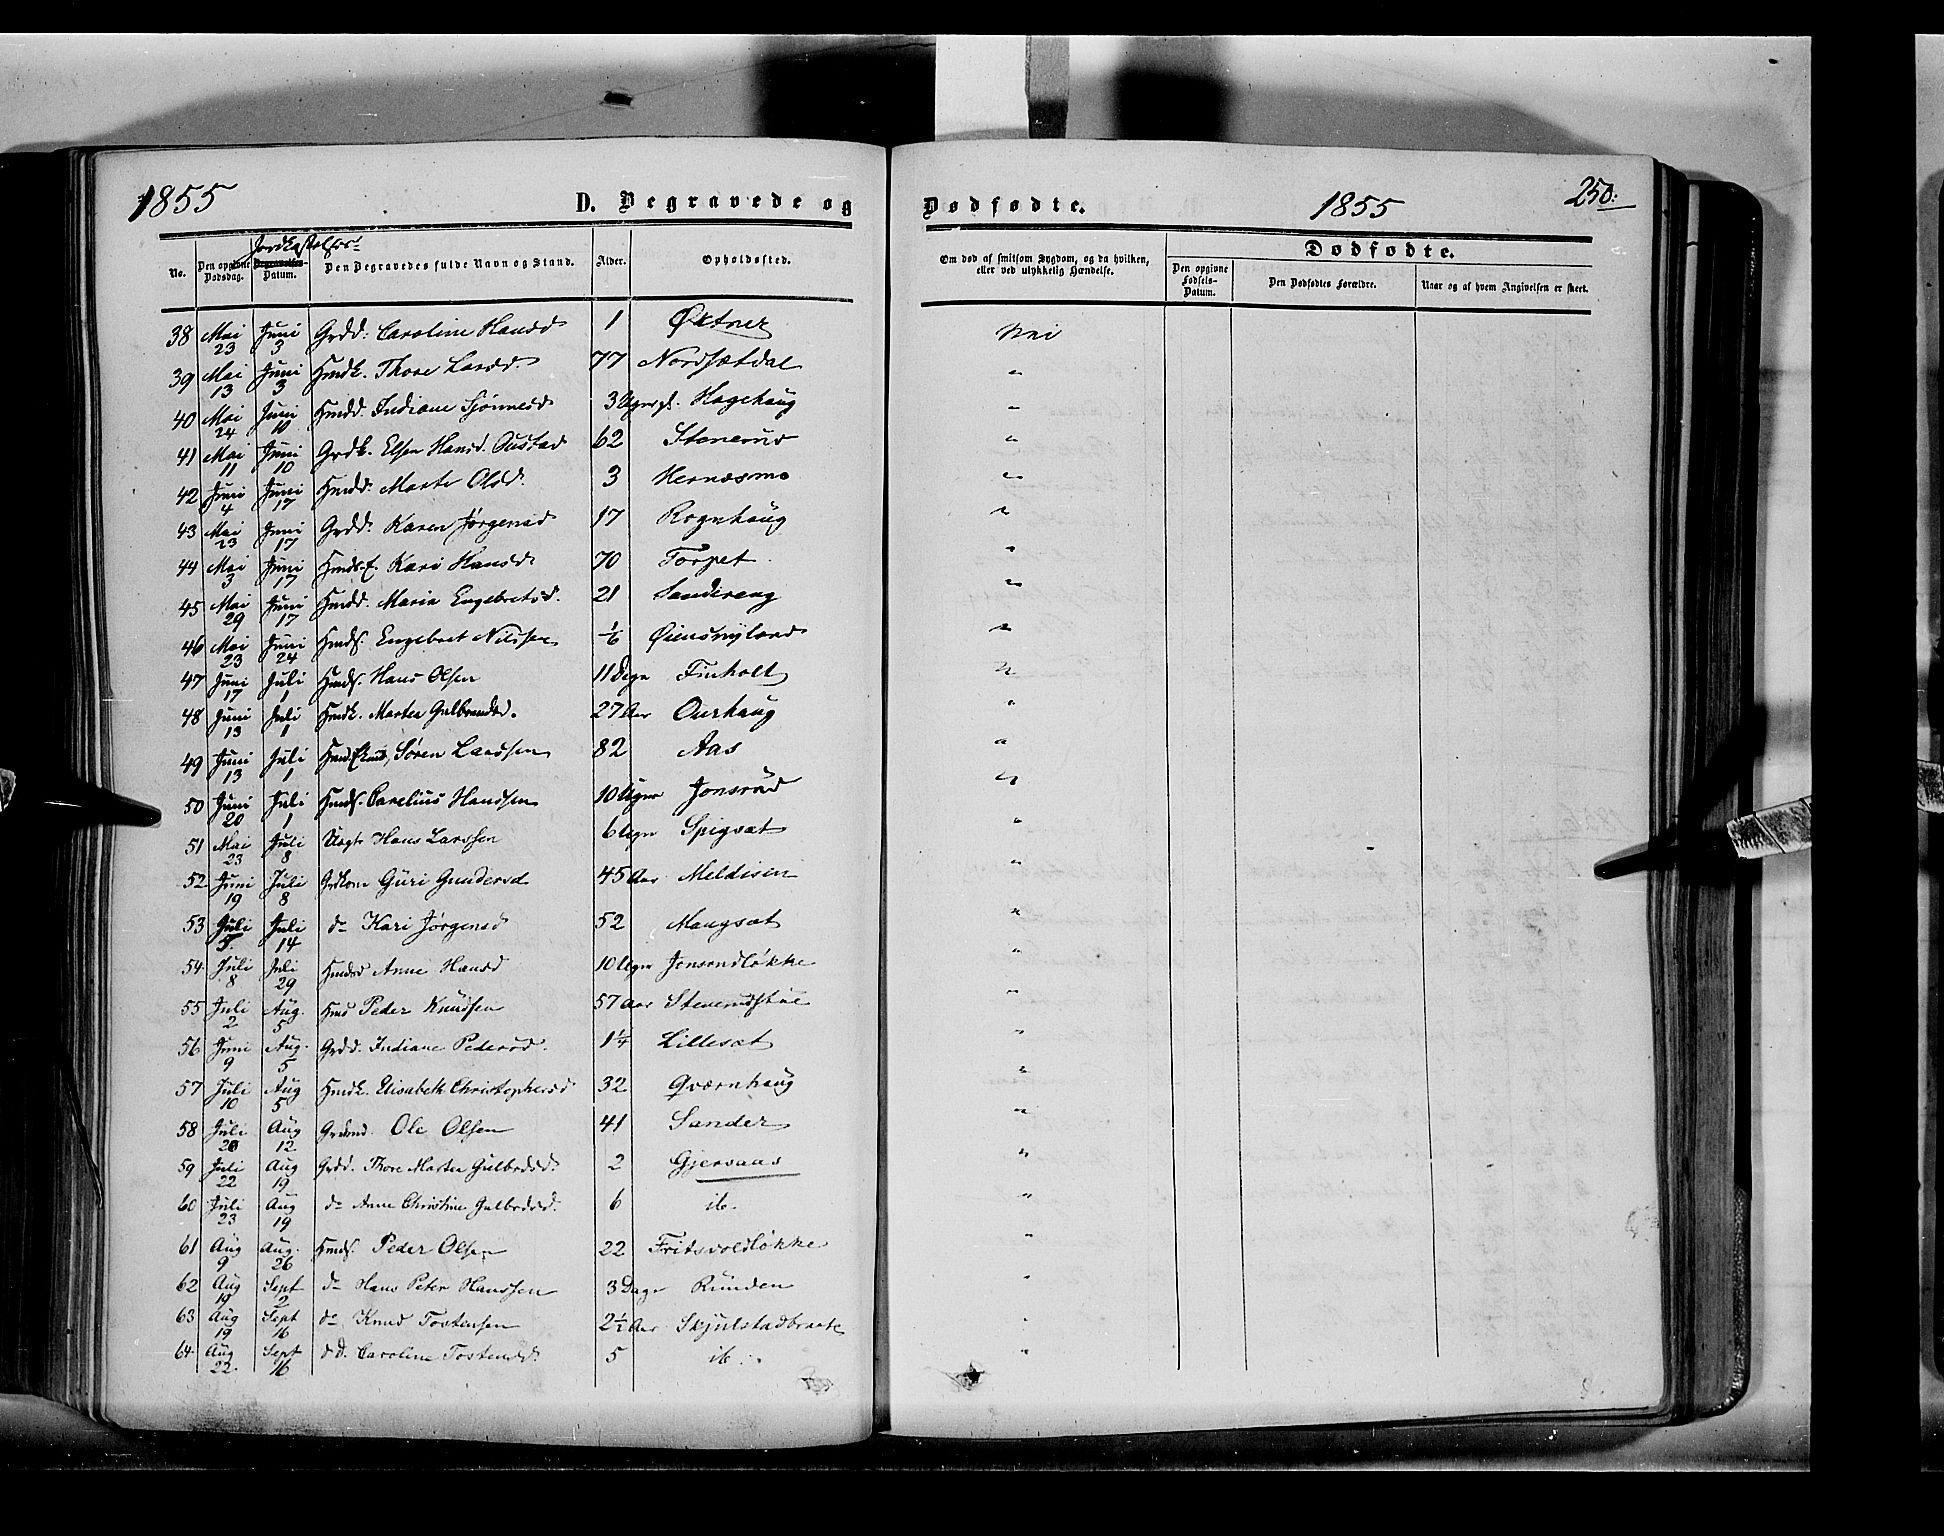 1855 D. Begravede og Dødfødte. 1855 250.
Jordkastelses-
No. Den opgivne Dødsdag. Begravelses-Datum. Den Begravedes fulde Navn og Stand. Alder. Opholdssted. Om død af smitsom Sygdom, og da hvilken, eller ved ulykkelig Hændelse. Dødfødte. Den opgivne Fødsels-Datum. Den Dødfødtes Forældre. Naar og af hvem Angivelsen er skeet.
38 Mai 23 Juni 3 Grdd. Caroline Hansd 1 Øktner Nei
39 Mai 13 Juni 3 Hmdk. Thore Larsd. 77 Nordsætdal "
40 Mai 24 Juni 10 Hmdd. Indiane Sjønnesd 3 Uger gl. Hagehaug "
41 Mai 11 Juni 10 Grdk. Elsen Hansd. Oustad 62 Stenerud "
42 Juni 4 Juni 17 Hmdd. Marte Olsd. 3 Hernæsmo "
43 Mai 23 Juni 17 Grdd. Karen Jørgensd 17 Rognhaug "
44 Mai 3 Juni 17 Hmds.E. Kari Hansd 70 Torpet "
45 Mai 29 Juni 17 Hmdd. Maria Engebretsd. 21 Sandereng "
46 Mai 23 Juni 24 Hmds. Engebret Nilssen 1/6 Øiensnyland "
47 Juni 17 Juli 1 Hmds. Hans Olsen 11 Dage Finholt "
48 Juni 13 Juli 1 Hmdk. Marthea Gulbrandsd. 27 Aar Ourhaug "
49 Juni 13 Juli 1 Søren Larssen 82 Aas "
50 Juni 20 Juli 1 Hmds. Carelius Hanssen 10 Uger Jonsrud "
51 Mai 23 Juli 8 Uægt. Hans Larssen 6 Uger Spigsæt "
52 Juni 19 Juli 8 Grdkone Guri Gundersd 45 Aar Meldisen "
53 Juli 5. Juli 14 do Kari Jørgensd 52 Mangsæt "
54. Juli 8 Juli 29 Hmdsd Anne Hansd 10 Uger Jonsrudløkke "
55 Juli 2 Aug. 5 Hmd Peder Knudsen 57 Aar Stenerudstue "
56 Juni 9 Aug. 5 Grdd. Indiane Pedersd. 1 1/4 Lillesæt "
57 Juli 10 Aug 5 Hmdk. Elisabeth Christophersd 32 Qværnhaug "
58 Juli 20 Aug 12 Grdmd. Ole Olsen 41 Sander "
59 Juli 22 Aug 19 Grdd. Thore Marthea Gulbrdsd. 2 Gjersaas "
60 Juli 23 Aug 19 do Anne Christine Gulbrdsd. 6 ib. "
61 Aug 9 Aug. 26 Hmds. Peder Olsen 22 Fritsvoldløkke "
62 Aug 19 Sept 2 do Hans Peter Hanssen 3 Dage Runden "
63 Aug 19 Sept 16 do Knud Tostensen 2 1/2 Aar Skjulstadbraate "
64 Aug 22. Sept 16 d d. Caroline Tostensd. 5 ib. "